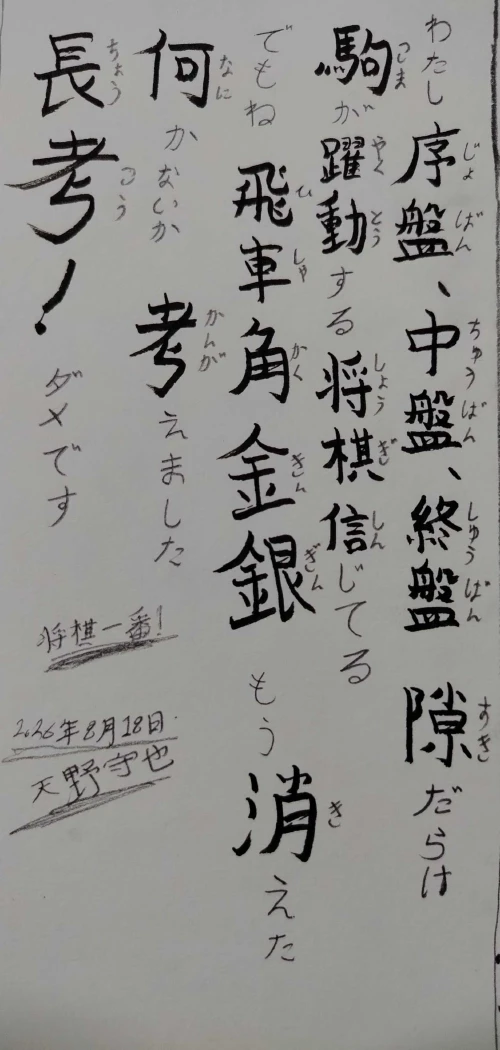 わたし序盤、中盤、終盤 隙だらけ
駒が躍動する将棋信じてる
でもね 飛車角金銀 もう消えた
何かないか 考えました
長考！ ダメです
将棋一番！
2026年8月18日
天野守也